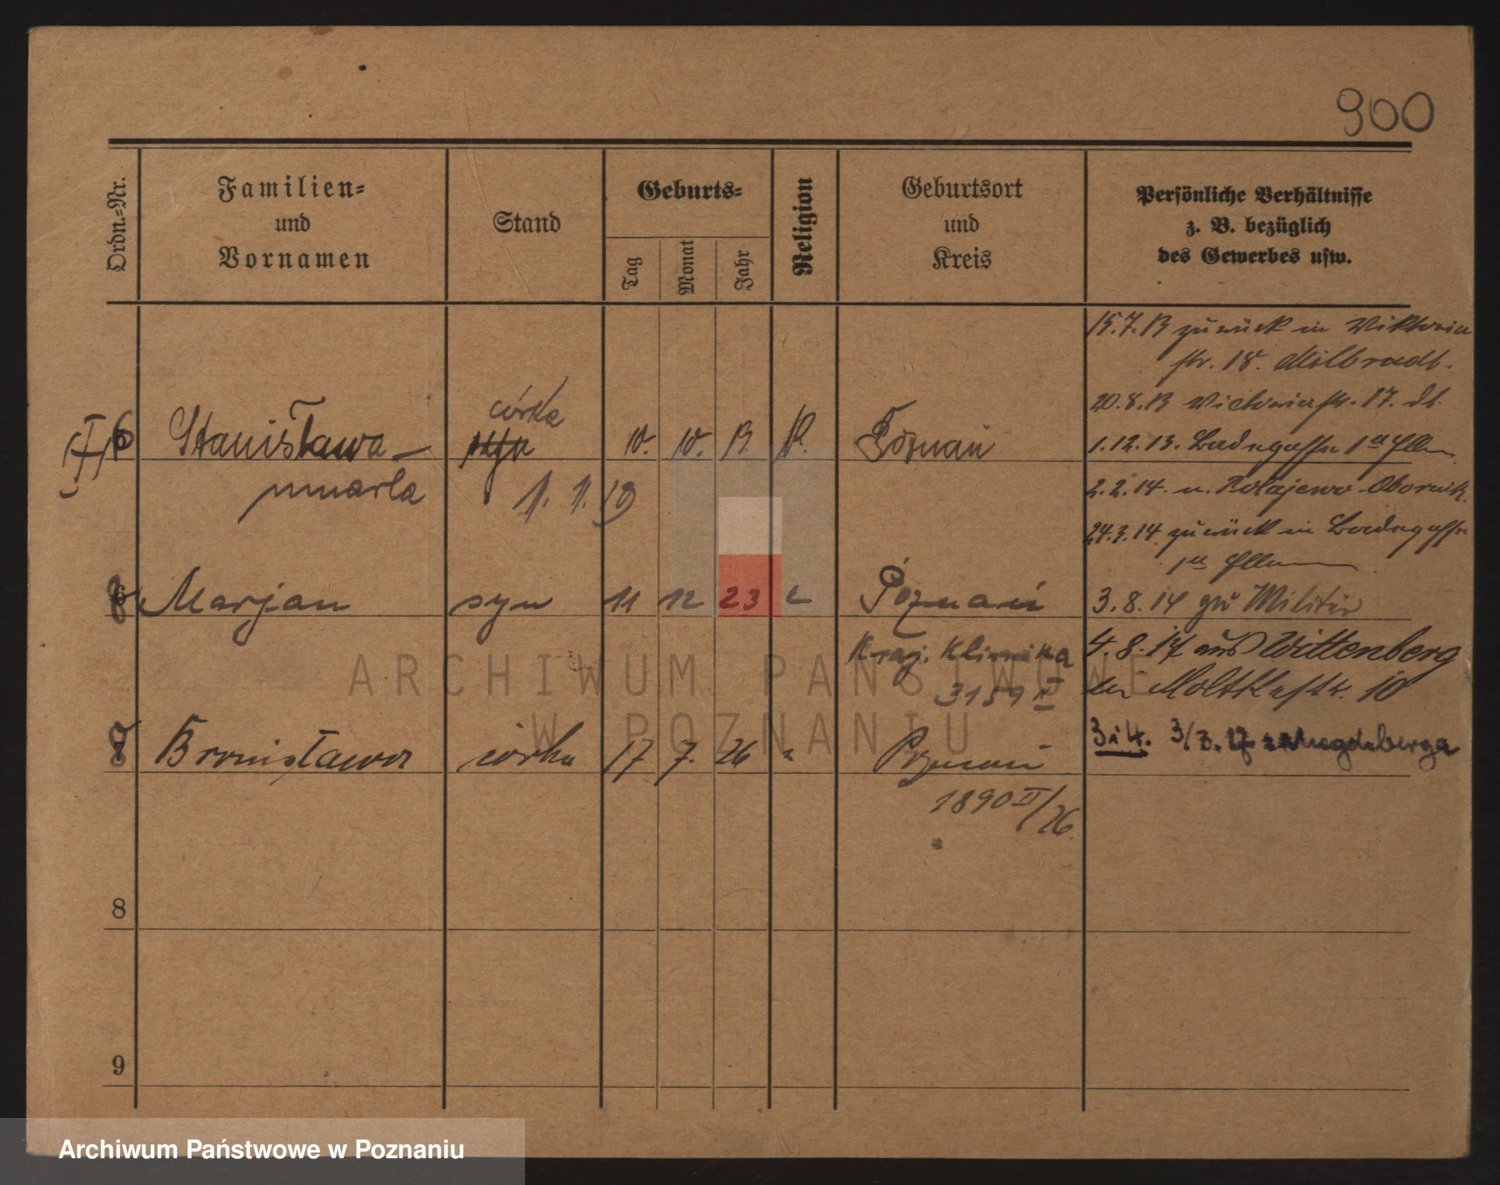 900
Ordn.-Nr.
Familien- und Vornamen
Stand
Geburts-
Tag
Monat
Jahr
Religion
Geburtsort und Kreis
Persönliche Verhältnisse
z. B. bezüglich
des Gewerbes usw.
15.7.13 zurück in Viktoria
str. 18.
20.8.13 Victoriastr. 17.
córka
6 Stanisława 10. 10. 13. K. Poznań
1.12.13.
umarła 1. 1. 19
2.2.14 n. Rołajewo Obornik
24.3.14 zurück in
8 Marjan syn 11 12 23 Poznań
3.8.14 zu Militär
Kraj. Klinika
3159 II
4.8.17 aus Wittenberg
in Moltkestr. 10
3 i 4. 3/3. 17 z Magdeberga
8 Bronisława córka 17 7. 26 Poznań
1890 II/26
8
9
ARCHIWUM PAŃSTWOWE
W POZNANIU
Archiwum Państwowe w Poznaniu